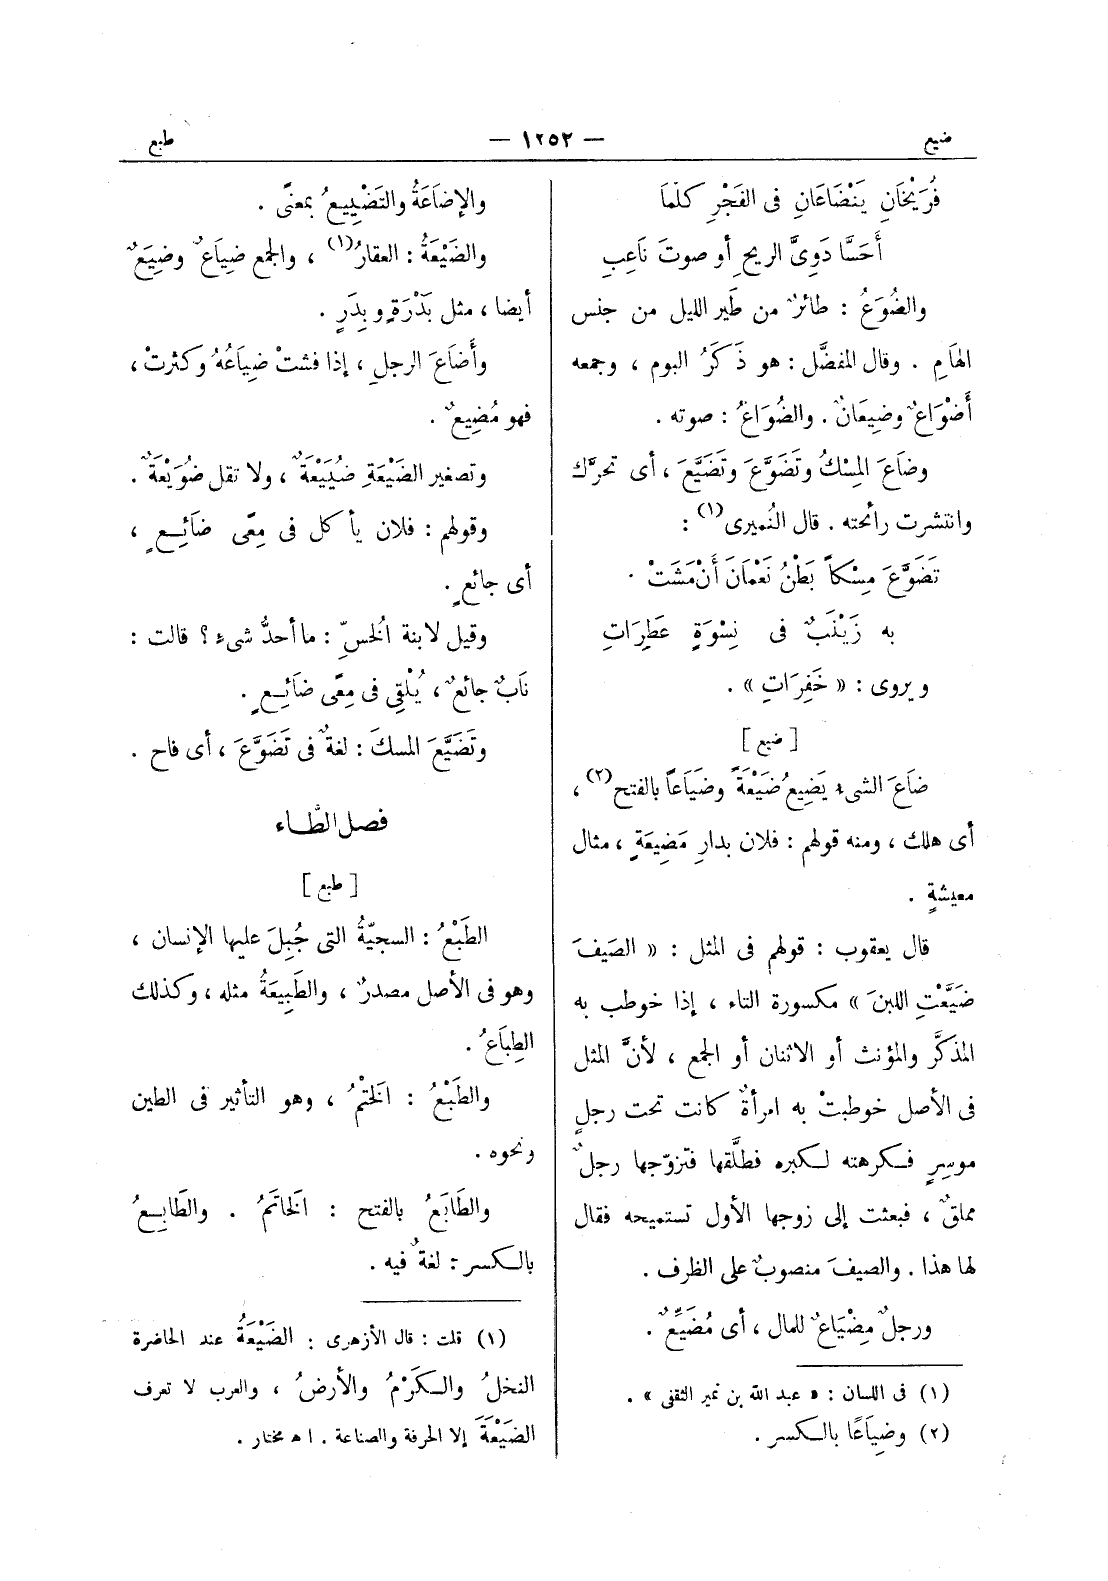 ضيع
— ١٢٥٢ —
طبع
فُرَيْخَانِ يَنْضَاعَانِ فى الفَجْرِ كلَّمَا
أَحَسَّا دَوِىَّ الريحِ أو صوتَ نَاعِبِ
والضُوَعُ : طائرٌ من طَير الليل من جنس
الهَامِ . وقال المفضَّل : هو ذَكَرُ البوم ، وجمعه
أَضْوَاعٌ وضِيعَانٌ . والضُوَاعُ : صوته .
وضَاعَ المِسْكُ وتَضَوَّعَ وتَضَيَّعَ ، أى تحرَّك
وانتشرت رائحته . قال النُميرى (١) :
تَضَوَّعَ مِسْكاً بَطْنُ نَعْمَانَ أَنْ مَشَتْ
به زَيْنَبٌ فى نِسْوَةٍ عَطِرَاتِ
ويروى : « خَفِرَاتِ » .
[ ضيع ]
ضَاعَ الشىء يَضِيعُ ضَيْعَةً وضَيَاعاً بالفتح (٢) ،
أى هلك ، ومنه قولهم : فلان بدارِ مَضِيعَةٍ ، مثال
معيشةٍ .
قال يعقوب : قولهم فى المثل : « الصَيفَ
ضَيَّعْتِ اللبنَ » مكسورة التاء ، إذا خوطب به
المذكَّر والمؤنث أو الاثنان أو الجمع ، لأنَّ المثل
فى الأصل خوطبتْ به امرأةٌ كانت تحت رجلٍ
موسِرٍ فكرهته لكبره فطلَّقها فتزوّجها رجلٌ
مملقٌ ، فبعثت إلى زوجها الأول تستميحه فقال
لها هذا . والصيفَ منصوبٌ على الظرف .
ورجلٌ مِضْيَاعٌ للمال ، أى مُضَيِّعٌ .
(١) فى اللسان : « عبد الله بن نمير الثقفى » .
(٢) وضِيَاعًا بالكسر .
والإضَاعَةُ والتَضْيِيعُ بمعنًى .
والضَيْعَةُ : العقارُ (١) ، والجمع ضِيَاعٌ وضِيَعٌ
أيضا ، مثل بَدْرَةٍ وبِدَرٍ .
وأَضَاعَ الرجل ، إذا فشتْ ضِيَاعُهُ وكثرتْ ،
فهو مُضِيعٌ .
وتصغير الضَيْعَةِ ضُيَيْعَةٌ ، ولا تقل ضُوَيْعَةٌ .
وقولهم : فلان يأكل فى مِعًى ضَائِعٍ ،
أى جائعٍ .
وقيل لابنة الخُسِّ : ما أحدُّ شىءٍ ؟ قالت :
نَابٌ جائعٌ ، يُلْقِى فى مِعًى ضَائِعٍ .
وتَضَيَّعَ المسكَ : لغةٌ فى تَضَوَّعَ ، أى فاح .
فصل الطّاء
[ طبع ]
الطَبْعُ : السجيّةُ التى جُبِلَ عليها الإنسان ،
وهو فى الأصل مصدرٌ ، والطَبِيعَةُ مثله ، وكذلك
الطِبَاعُ .
والطَبْعُ : الخَتْمُ ، وهو التأثير فى الطين
ونحوه .
والطَابَعُ بالفتح : الخَاتَمُ . والطَابِعُ
بالكسر : لغةٌ فيه .
(١) قلت : قال الأزهرى : الضَيْعَةُ عند الحاضرة
النخلُ والكَرْمُ والأرضُ ، والعرب لا تعرف
الضَيْعَةَ إلا الحرفة والصناعة . اه مختار .